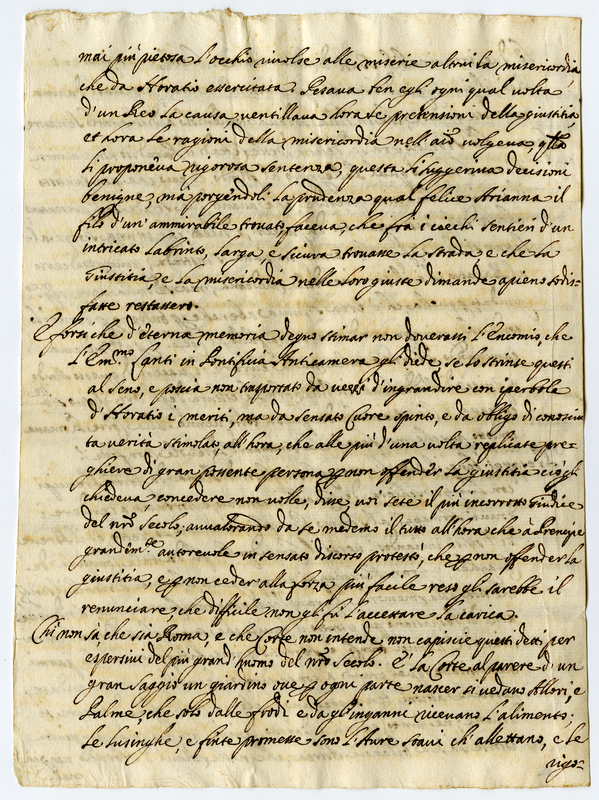 mai più pietosa l'occhio involse alle miserie altrui la misericordia,
che da Horatio essercitata. Pesava ben egli ogni qual volta
d'un Reo la causa ventillava hora le pretensioni della giustitia,
et hora le ragioni della misericordia nell' aiõ volgeva,
li proponeva rigorosa sentenza, questa li suggeriva decisioni
benigne, mà porgendoli la prudenza qual felice Arianna il
filo d'un' ammirabile trovato faceva, che frà i ciechi sentieri d'un
intricato Labrinto, larga, e sicura trovasse la strada e che la
Giustitia, e la misericordia nelle loro giuste dimande apieno sodis-
fatte restassero.
E forsi che d'eterna memoria degno stimar non doverassi l'Encomio, che
l'Em.mo Lanti in Pontificia Anticamera gli diede, se lo strinse questi
al seno, e poscia non trasportato da vezzi d'ingrandire con iperbole
d'Horatio i meriti, ma da sensato Cuore spinto, e da obligo di conosciu
ta verità stimolato, all'hora, che alle più d'una volta replicate pre-
ghiere di gran possente persona p non offender la giustitia ciò gli
chiedeva, concedere non volle, disse, voi sete il più incorrotto Giudice
del nrõ Secolo; avvalorando da se medemo il tutto all'hora che à Prencipe
grande autorevole in sensato discorso protestò, che p non offender la
giustitia, e p non ceder alla forza più facile reso gli sarebbe il
renunciare, che difficile non gli fù l'accettare la carica.
Chi non sà che sia Roma, e che Corte non intende non capisce questi detti, per
espersivi del più grand' huomo del nrõ Secolo. E' la Corte al parere d'un
gran saggio un giardino ove p ogni parte nascer si vedano Allori, e
Palme, che solo dalle frodi e da gl'inganni ricevano l'alimento;
Le lusinghe, e finte promesse sono l'Aure soavi ch' allettano, e le
rigo-